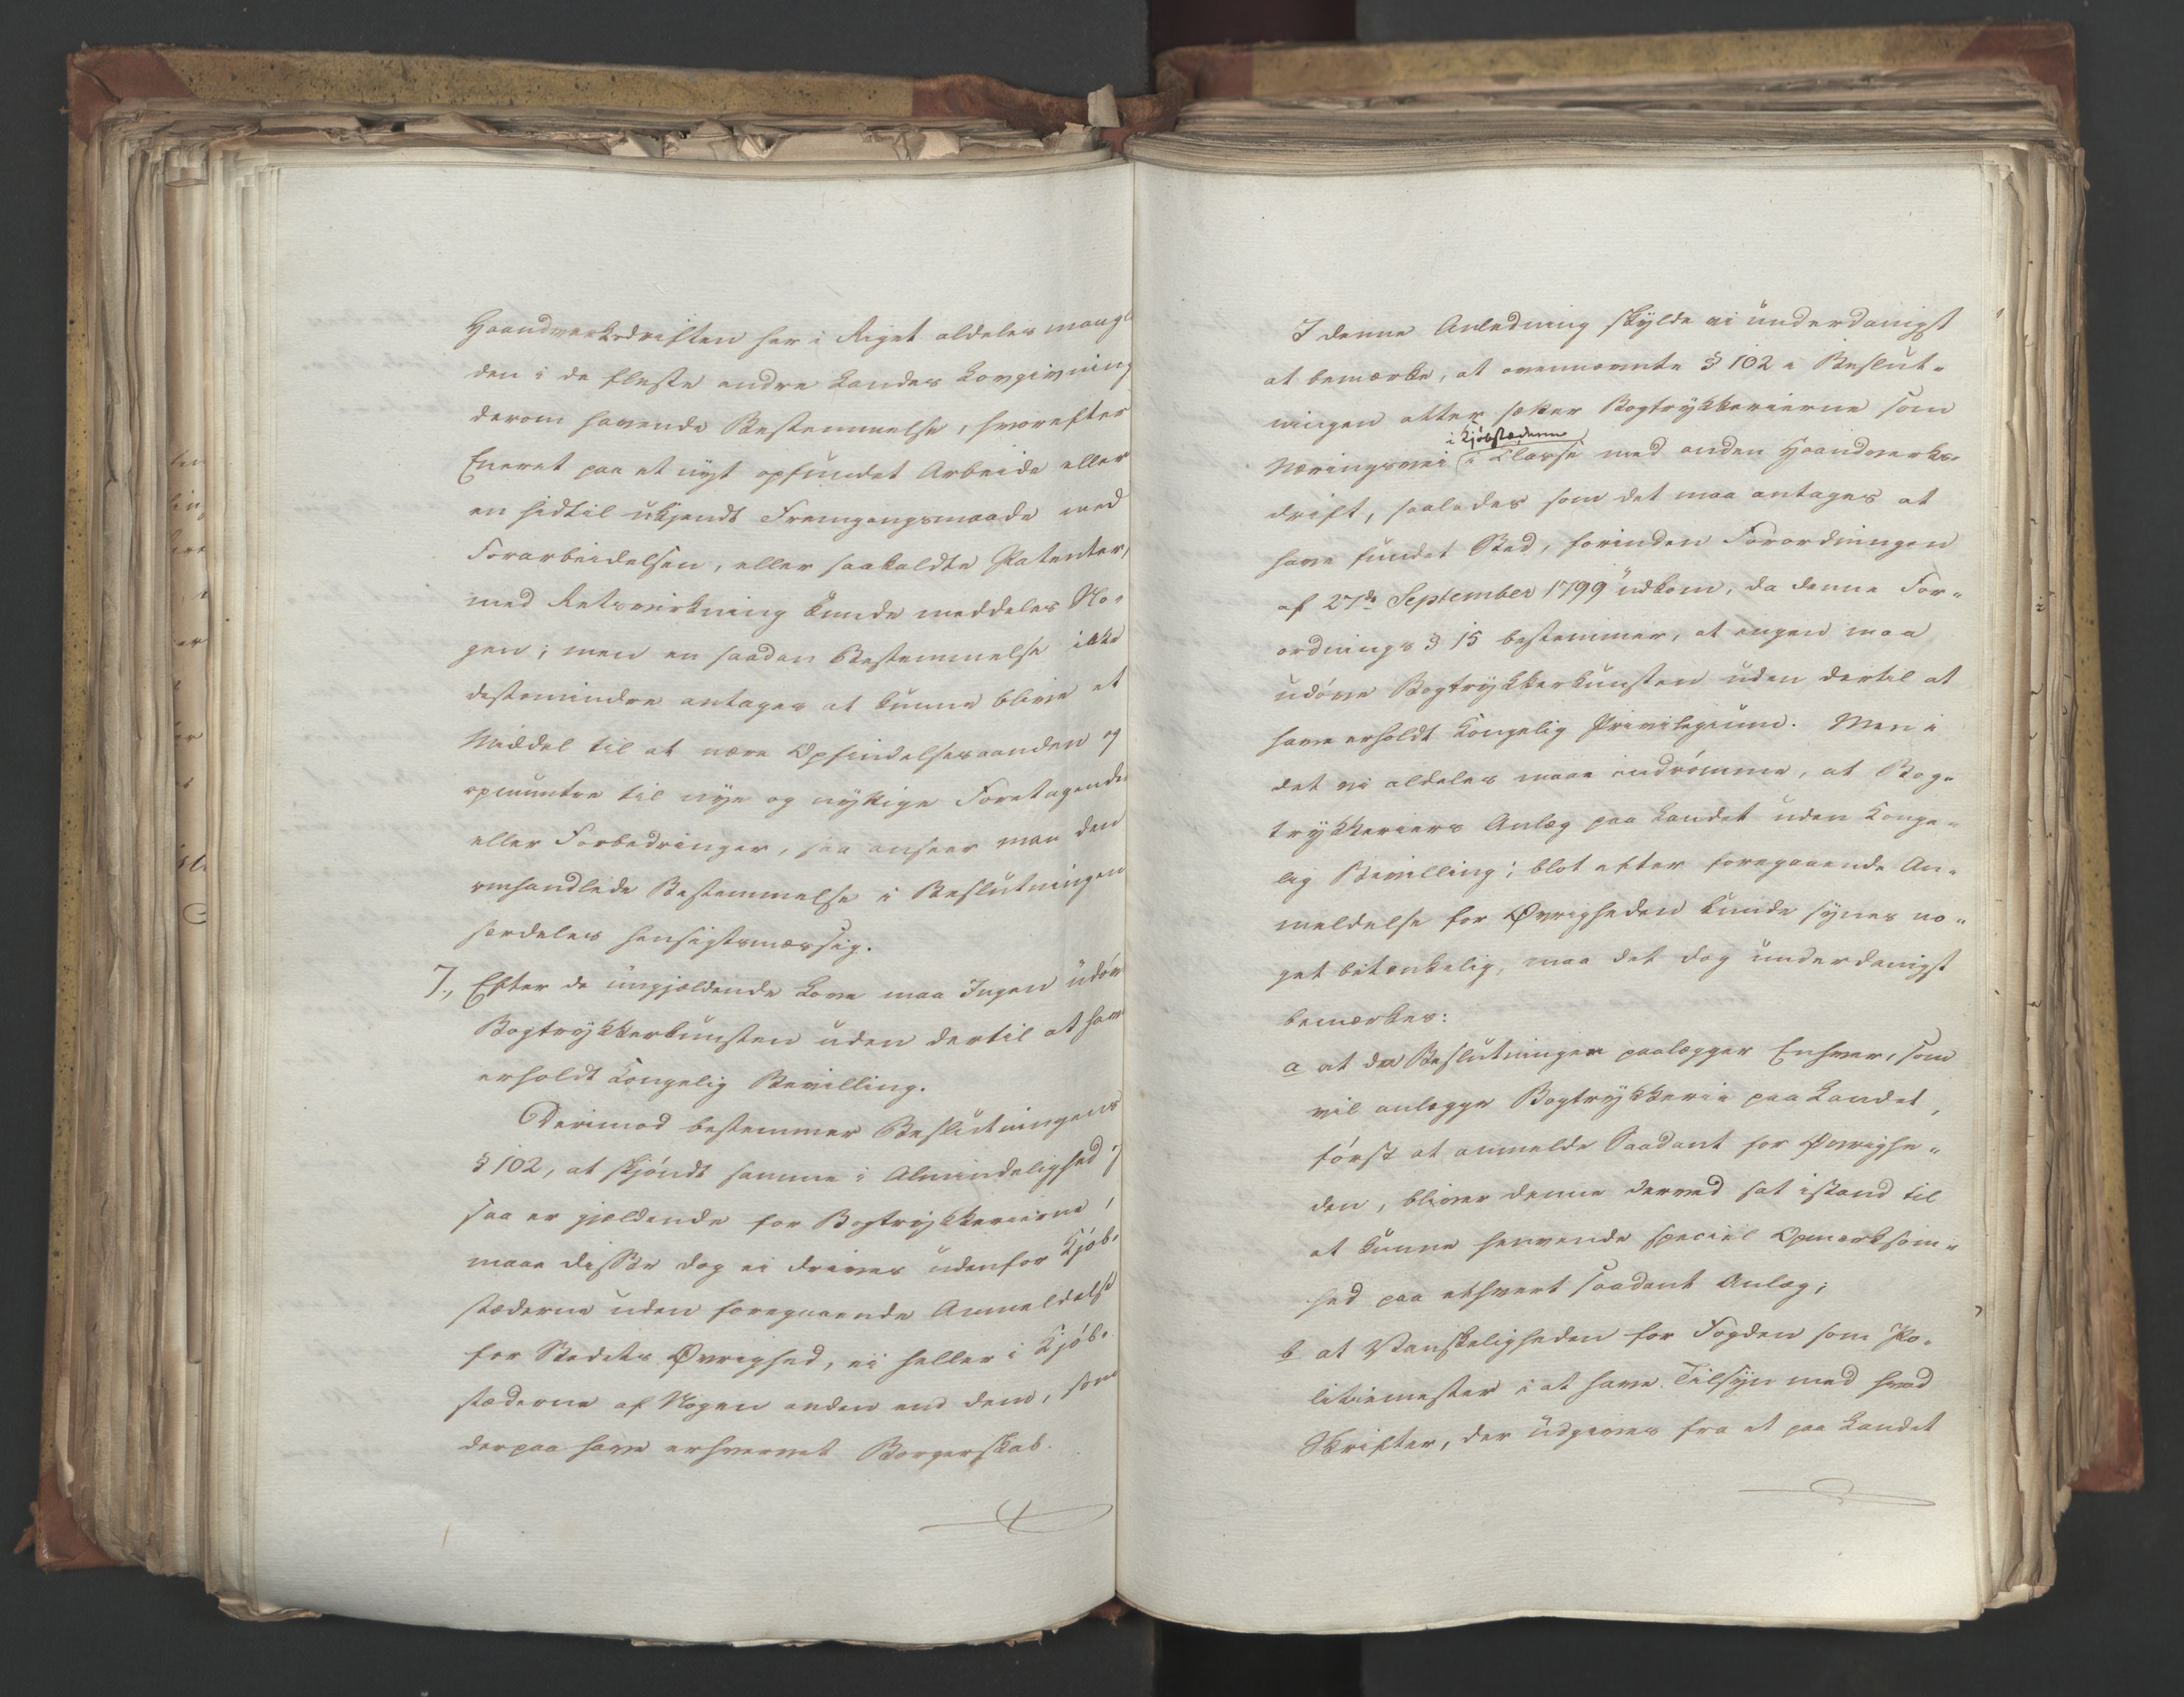 Haandverksdriften her i Riget aldeles mangl
den i de fleste andre Landes Lovgivning
derom havende Bestemmelse, hvorefter
Eneret paa et nyt opfundet Arbeide eller
en hidtil ukjendt Fremgangsmaade ved
Forarbeidelsen, eller saakaldte Patenter,
med Retsvirkning kunde meddeles No-
gen; men en saadan Bestemmelse ikke
destomindre antages at kunne blive et
Middel til at nære Opfindelsesaanden og
opmuntre til nye og nyttige Foretagender
eller Forbedringer, saa anseer man den
omhandlede Bestemmelse i Beslutningen
særdeles hensigtsmæssig.
7., Efter de nugjældende Love maa Ingen udøve
Bogtrykkerkunsten uden dertil at have
erholdt Kongelig Bevilling.
Derimod bestemmer Beslutningens
§ 102, at skjøndt samme i Almindelighed og
saa er gjældende for Bogtrykkerierne,
maae disse dog ei drives udenfor Kjøb-
stæderne uden foregaaende Anmeldelse
for Stedets Øvrighed, ei heller i Kjøb-
stæderne af Nogen anden end dem, som
derpaa have erhvervet Borgerskab.
I denne Anledning skulde vi underdanigst
at bemærke, at ovennævnte § 102 i Beslut-
ningen atter sætter Bogtrykkerierne som
i Kjøbstæderne
Næringsvei i Classe med anden Haandverks-
drift, saaledes som det maa antages at
have fundet Sted, forinden Forordningen
af 27de September 1799 udkom, da denne For-
ordnings § 15 bestemmer, at ingen maa
udøve Bogtrykkerkunsten uden dertil at
have erholdt Kongelig Privilegium. Men i
det vi aldeles maae indrømme, at Bog-
trykkeriers Anlæg paa Landet uden Konge-
lig Bevilling; blot efter foregaaende An-
meldelse for Øvrigheden kunde synes no-
get betænkelig, maa det dog underdanigst
bemærkes:
a at da Beslutningen paalægger Enhver, som
vil anlægge Bogtrykkerie paa Landet,
først at anmelde Saadant for Øvrighe-
den, bliver denne derved sat istand til
at kunne henvende speciel Opmærksom-
hed paa ethvert saadant Anlæg;
b at Vanskeligheden for Fogden som Po-
litiemester i at have Tilsyn med hvad
Skrifter, der udgives fra et paa Landet